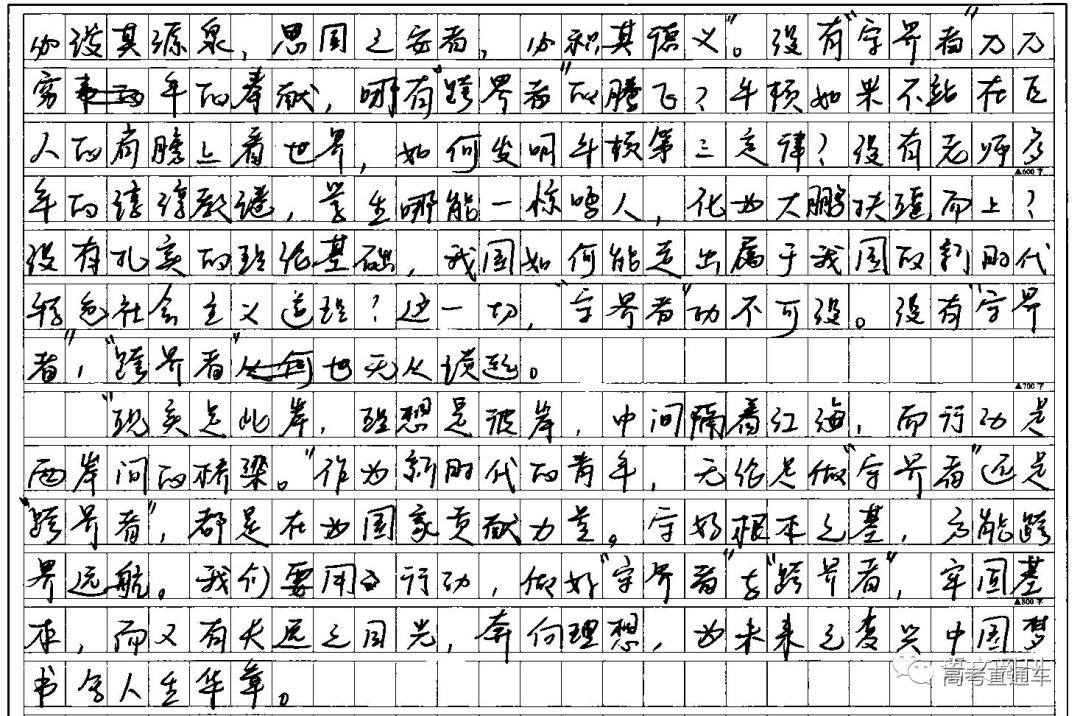 必浚其源泉，思国之安者，必积其德义”。没有“守界者”万万
穷年的奉献，哪有“跨界者”的腾飞？牛顿如果不站在巨
人的肩膀上看世界，如何发明牛顿第三定律？没有老师多
▲600字
年的谆谆教诲，学生哪能一惊鸣人，化为大鹏扶摇而上？
没有扎实的理论基础，我国如何能走出属于我国的新时代
特色社会主义道理？这一切，“守界者”功不可没。没有“守界
者”，“跨界者”也无从谈起。
▲700字
“现实是此岸，理想是彼岸，中间隔着红海，而行动是
两岸间的桥梁。”作为新时代的青年，无论是做“守界者”还是
“跨界者”，都是在为国家贡献力量。守好根本之基，方能跨
界远航。我们要用行动，做好“守界者”与“跨界者”，牢固基
▲800字
本，而又有长远之目光，奔向理想，为未来之复兴中国梦
书写人生华章。
高考直通车